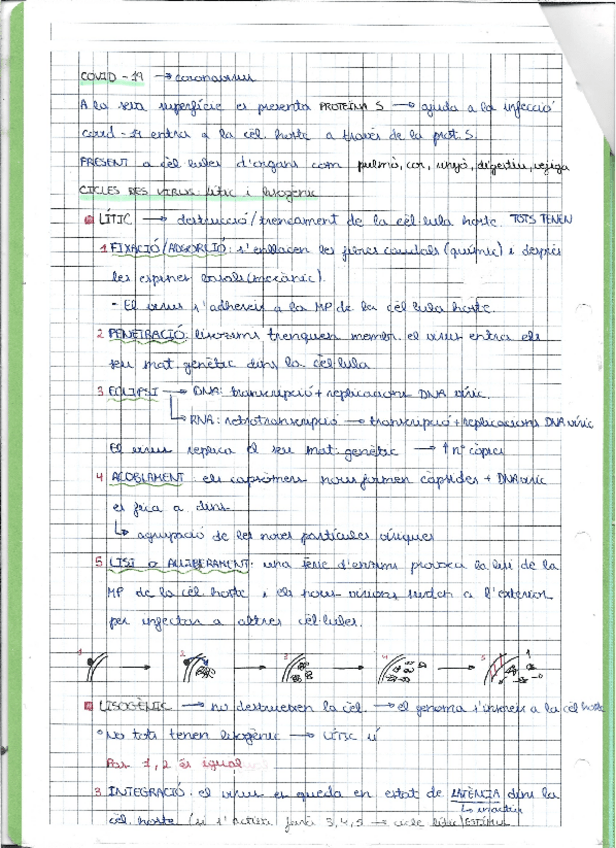 COVID-19 → coronavirus
A la seva superfície es presenta PROTEÏNA S → ajuda a la infecció
Covid-19 entra a la cèl. hoste a través de la prot. S.
PRESENT a cèl·lules d'òrgans com pulmó, cor, ronyó, digestiu, vejiga
CICLES DELS VIRUS: lític i lisogènic
LÍTIC → destrucció/trencament de la cèl·lula hoste. TOTS TENEN
1 FIXACIÓ/ADSORCIÓ: s'enllacen les fibres caudals (químic) i després
les espines basals (mecànic).
- El virus s'adhereix a la MP de la cèl·lula hoste.
2 PENETRACIÓ: lisozims trenquen membr. el virus entra el
seu mat. genètic dins la cèl·lula
3 ECLIPSI → DNA: transcripció + replicacions DNA víric.
↳ RNA: retrotranscripció → transcripció + replicacions DNA víric
El virus replica el seu mat. genètic → ↑ nº còpies
4 ACOBLAMENT: els capsòmers nous formen càpsides + DNA víric
es fica a dins
↳ agrupació de les noves partícules víriques
5 LISI o ALLIBERAMENT: una sèrie d'enzims provoca la lisi de la
MP de la cèl. hoste i els nous virions surten a l'exterior
per infectar a altres cèl·lules.
1 → 2 → 3 → 4 → 5
LISOGÈNIC → no destrueixen la cèl. → el genoma s'insereix a la cèl. hoste
• No tots tenen lisogènic → LÍTIC sí
Pas 1, 2 és igual
3 INTEGRACIÓ: el virus es queda en estat de LATÈNCIA dins la
↳ inactiu
cèl. hoste (si s'activa farà 3, 4, 5 → cicle lític) ESTÍMUL